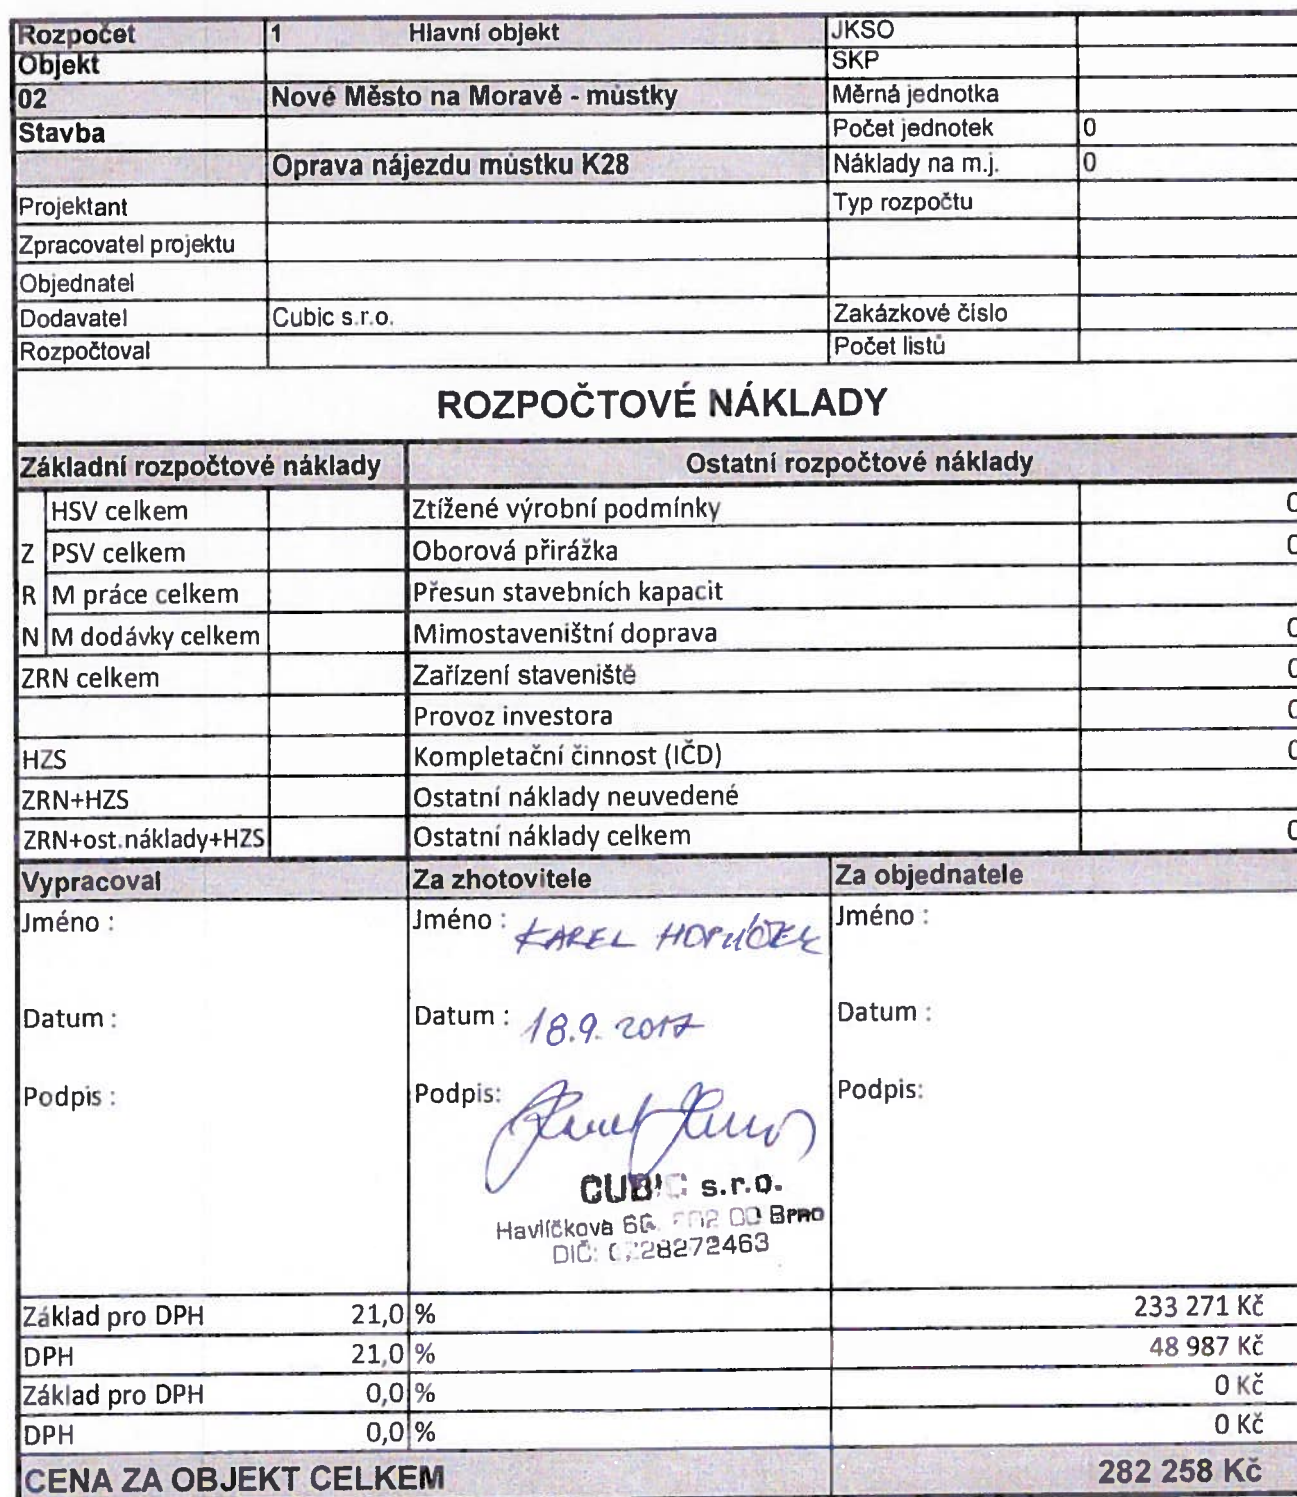 Rozpočet 1 Hlavní objekt JKSO
Objekt SKP
02 Nové Město na Moravě - můstky Měrná jednotka
Stavba Počet jednotek 0
Oprava nájezdu můstku K28 Náklady na m.j. 0
Projektant Typ rozpočtu
Zpracovatel projektu
Objednatel
Dodavatel Cubic s.r.o. Zakázkové číslo
Rozpočtoval Počet listů
ROZPOČTOVÉ NÁKLADY
Základní rozpočtové náklady Ostatní rozpočtové náklady
HSV celkem Ztížené výrobní podmínky 0
Z PSV celkem Oborová přirážka 0
R M práce celkem Přesun stavebních kapacit
N M dodávky celkem Mimostaveništní doprava 0
ZRN celkem Zařízení staveniště 0
Provoz investora 0
HZS Kompletační činnost (IČD) 0
ZRN+HZS Ostatní náklady neuvedené
ZRN+ost.náklady+HZS Ostatní náklady celkem 0
Vypracoval Za zhotovitele Za objednatele
Jméno : Jméno : KAREL Jméno :
Datum : Datum : 18.9. 2017 Datum :
Podpis : Podpis: Podpis:
CUBIC s.r.o.
Havlíčkova Brno
DIČ:
Základ pro DPH 21,0 % 233 271 Kč
DPH 21,0 % 48 987 Kč
Základ pro DPH 0,0 % 0 Kč
DPH 0,0 % 0 Kč
CENA ZA OBJEKT CELKEM 282 258 Kč